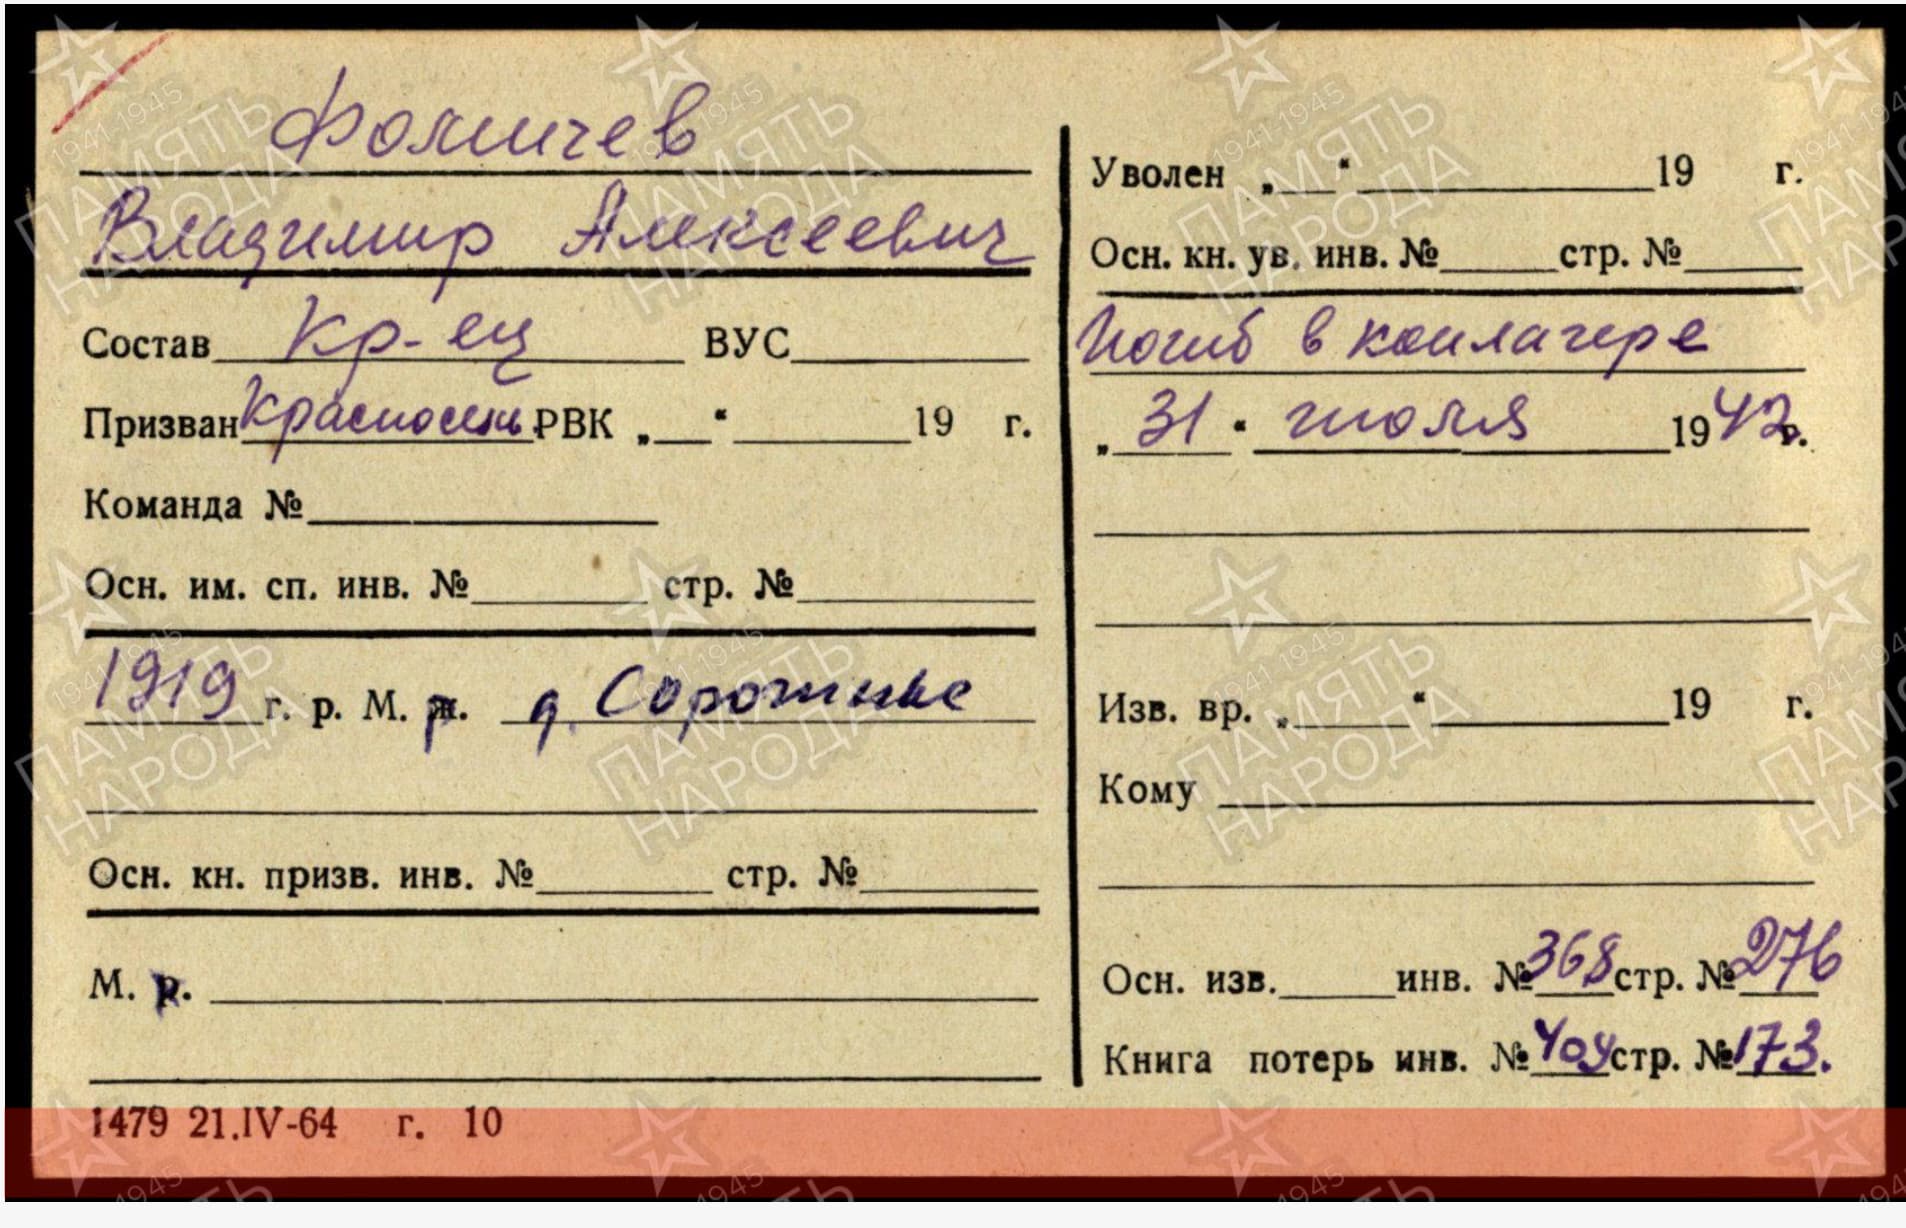 Фомичев
Владимир Алексеевич
Состав Кр-ец ВУС
Призван Красносельс. РВК „ “ 19 г.
Команда №
Осн. им. сп. инв. № стр. №
1919 г. р. М. р. д. Сорочинье
Осн. кн. призв. инв. № стр. №
М.
1479 21.IV-64 г. 10
Уволен „ “ 19 г.
Осн. кн. ув. инв. № стр. №
Погиб в концлагере
„31“ июля 1942 г.
Изв. вр. „ “ 19 г.
Кому
Осн. изв. инв. № 368 стр. № 276
Книга потерь инв. № 404 стр. № 173.
1941-1945
ПАМЯТЬ
НАРОДА